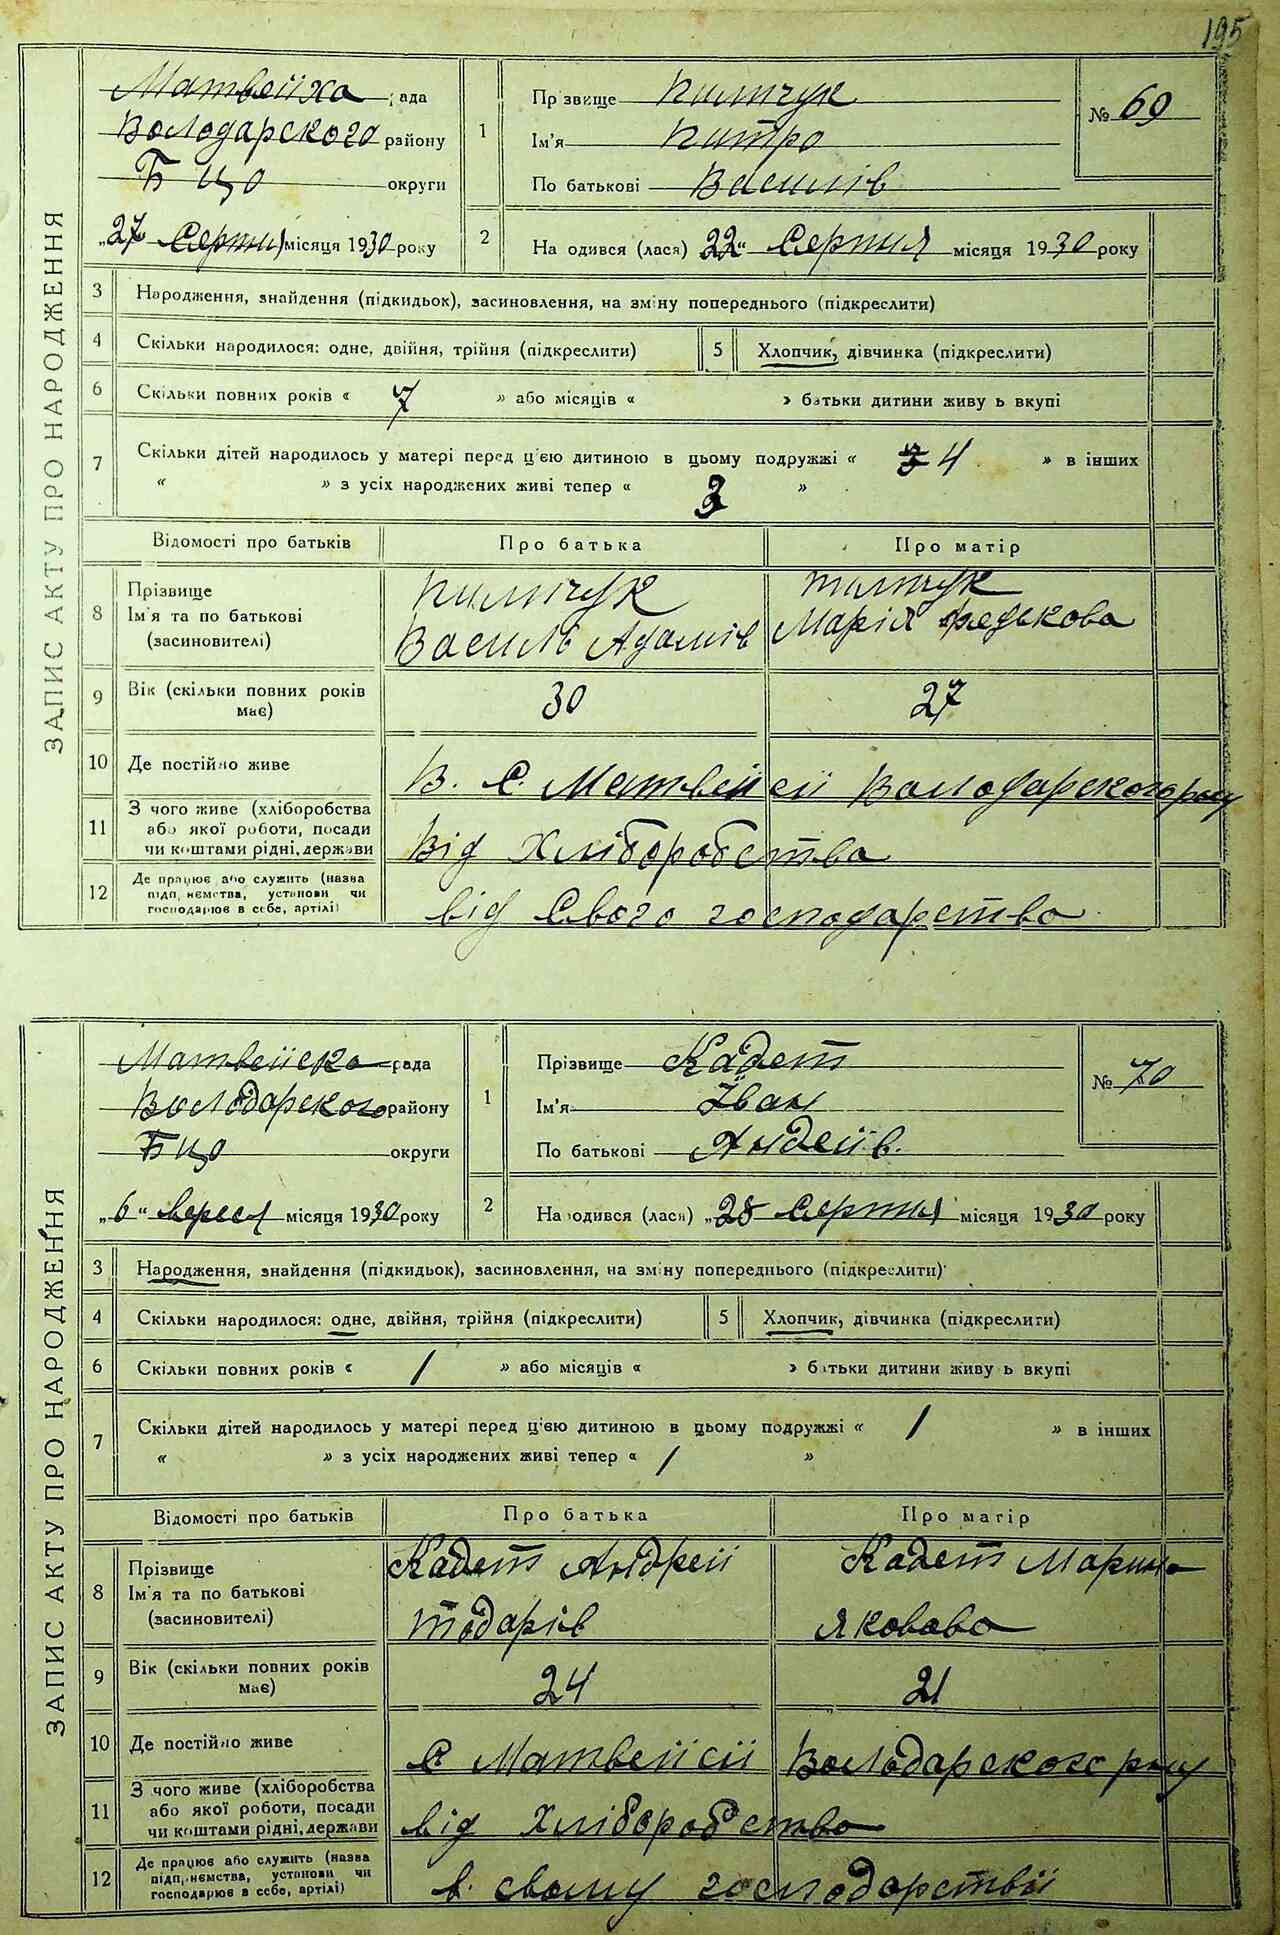 195
ЗАПИС АКТУ ПРО НАРОДЖЕННЯ
Матвеїха рада
Володарського району
Б Цо округи
„27" Серпня місяця 1930 року
1 Прізвище Пилипчук
Ім'я Питро
По батькові Василів
№ 69
2 Народився (лася) „22" Серпня місяця 1930 року
3 Народження, знайдення (підкидьок), засиновлення, на зміну попереднього (підкреслити)
4 Скільки народилося: одне, двійня, трійня (підкреслити) 5 Хлопчик, дівчинка (підкреслити)
6 Скільки повних років « 7 » або місяців « » батьки дитини живуть вкупі
7 Скільки дітей народилось у матері перед ц'єю дитиною в цьому подружжі « 4 » в інших
« » з усіх народжених живі тепер « 3 »
Відомості про батьків Про батька Про матір
8 Прізвище
Ім'я та по батькові
(засиновителі)
Василь Адамів
Марія Федькова
9 Вік (скільки повних років має) 30 27
10 Де постійно живе В. С. Матвеїсїї Володарського р-ну
11 З чого живе (хліборобства або якої роботи, посади чи коштами рідні, держави Від Хліборобства
12 Де працює або служить (назва підприємства, установи чи господарює в себе, артілі) від Свого господарство
ЗАПИС АКТУ ПРО НАРОДЖЕННЯ
Матвеїско рада
Володарского району
Б Цо округи
„6" Вересня місяця 1930 року
1 Прізвище Кадет
Ім'я Іван
По батькові Андеїів.
№ 70
2 Народився (лася) „28" Серпня місяця 1930 року
3 Народження, знайдення (підкидьок), засиновлення, на зміну попереднього (підкреслити)
4 Скільки народилося: одне, двійня, трійня (підкреслити) 5 Хлопчик, дівчинка (підкреслити)
6 Скільки повних років « / » або місяців « » батьки дитини живуть вкупі
7 Скільки дітей народилось у матері перед ц'єю дитиною в цьому подружжі « / » в інших
« » з усіх народжених живі тепер « / »
Відомості про батьків Про батька Про матір
8 Прізвище
Ім'я та по батькові
(засиновителі)
Кадет Андреїї
Тодарів
Кадет Марина
Яковова
9 Вік (скільки повних років має) 24 21
10 Де постійно живе С Матвеїісїї Володарского р-ну
11 З чого живе (хліборобства або якої роботи, посади чи коштами рідні, держави від Хліборобство
12 Де працює або служить (назва підприємства, установи чи господарює в себе, артілі) в. свому господарствїї